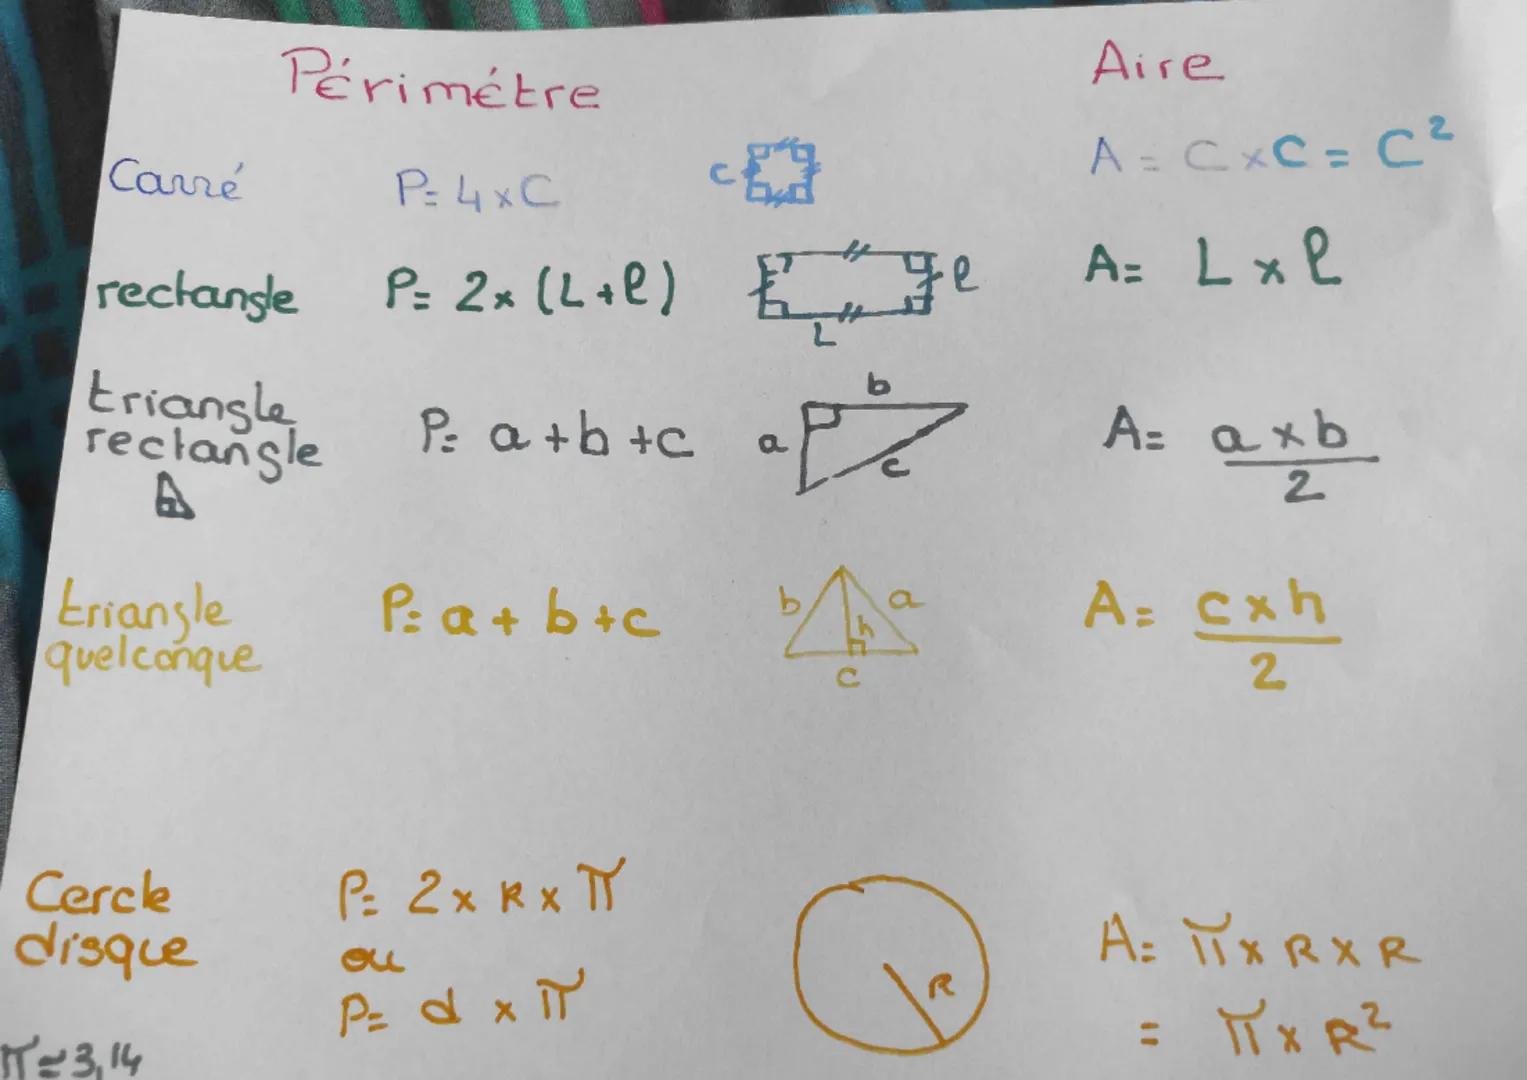 Périmétre Aire
Carré P=4×C C A=C×C=C²
rectangle P=2×(L+l) l A=L×l
L
triangle rectangle P=a+b+c a b c A=a×b/2
triangle quelconque P=a+b+c b a h c A=c×h/2
Cercle disque P=2×R×π R A=π×R×R
ou
P=d×π =π×R²
π≃3,14